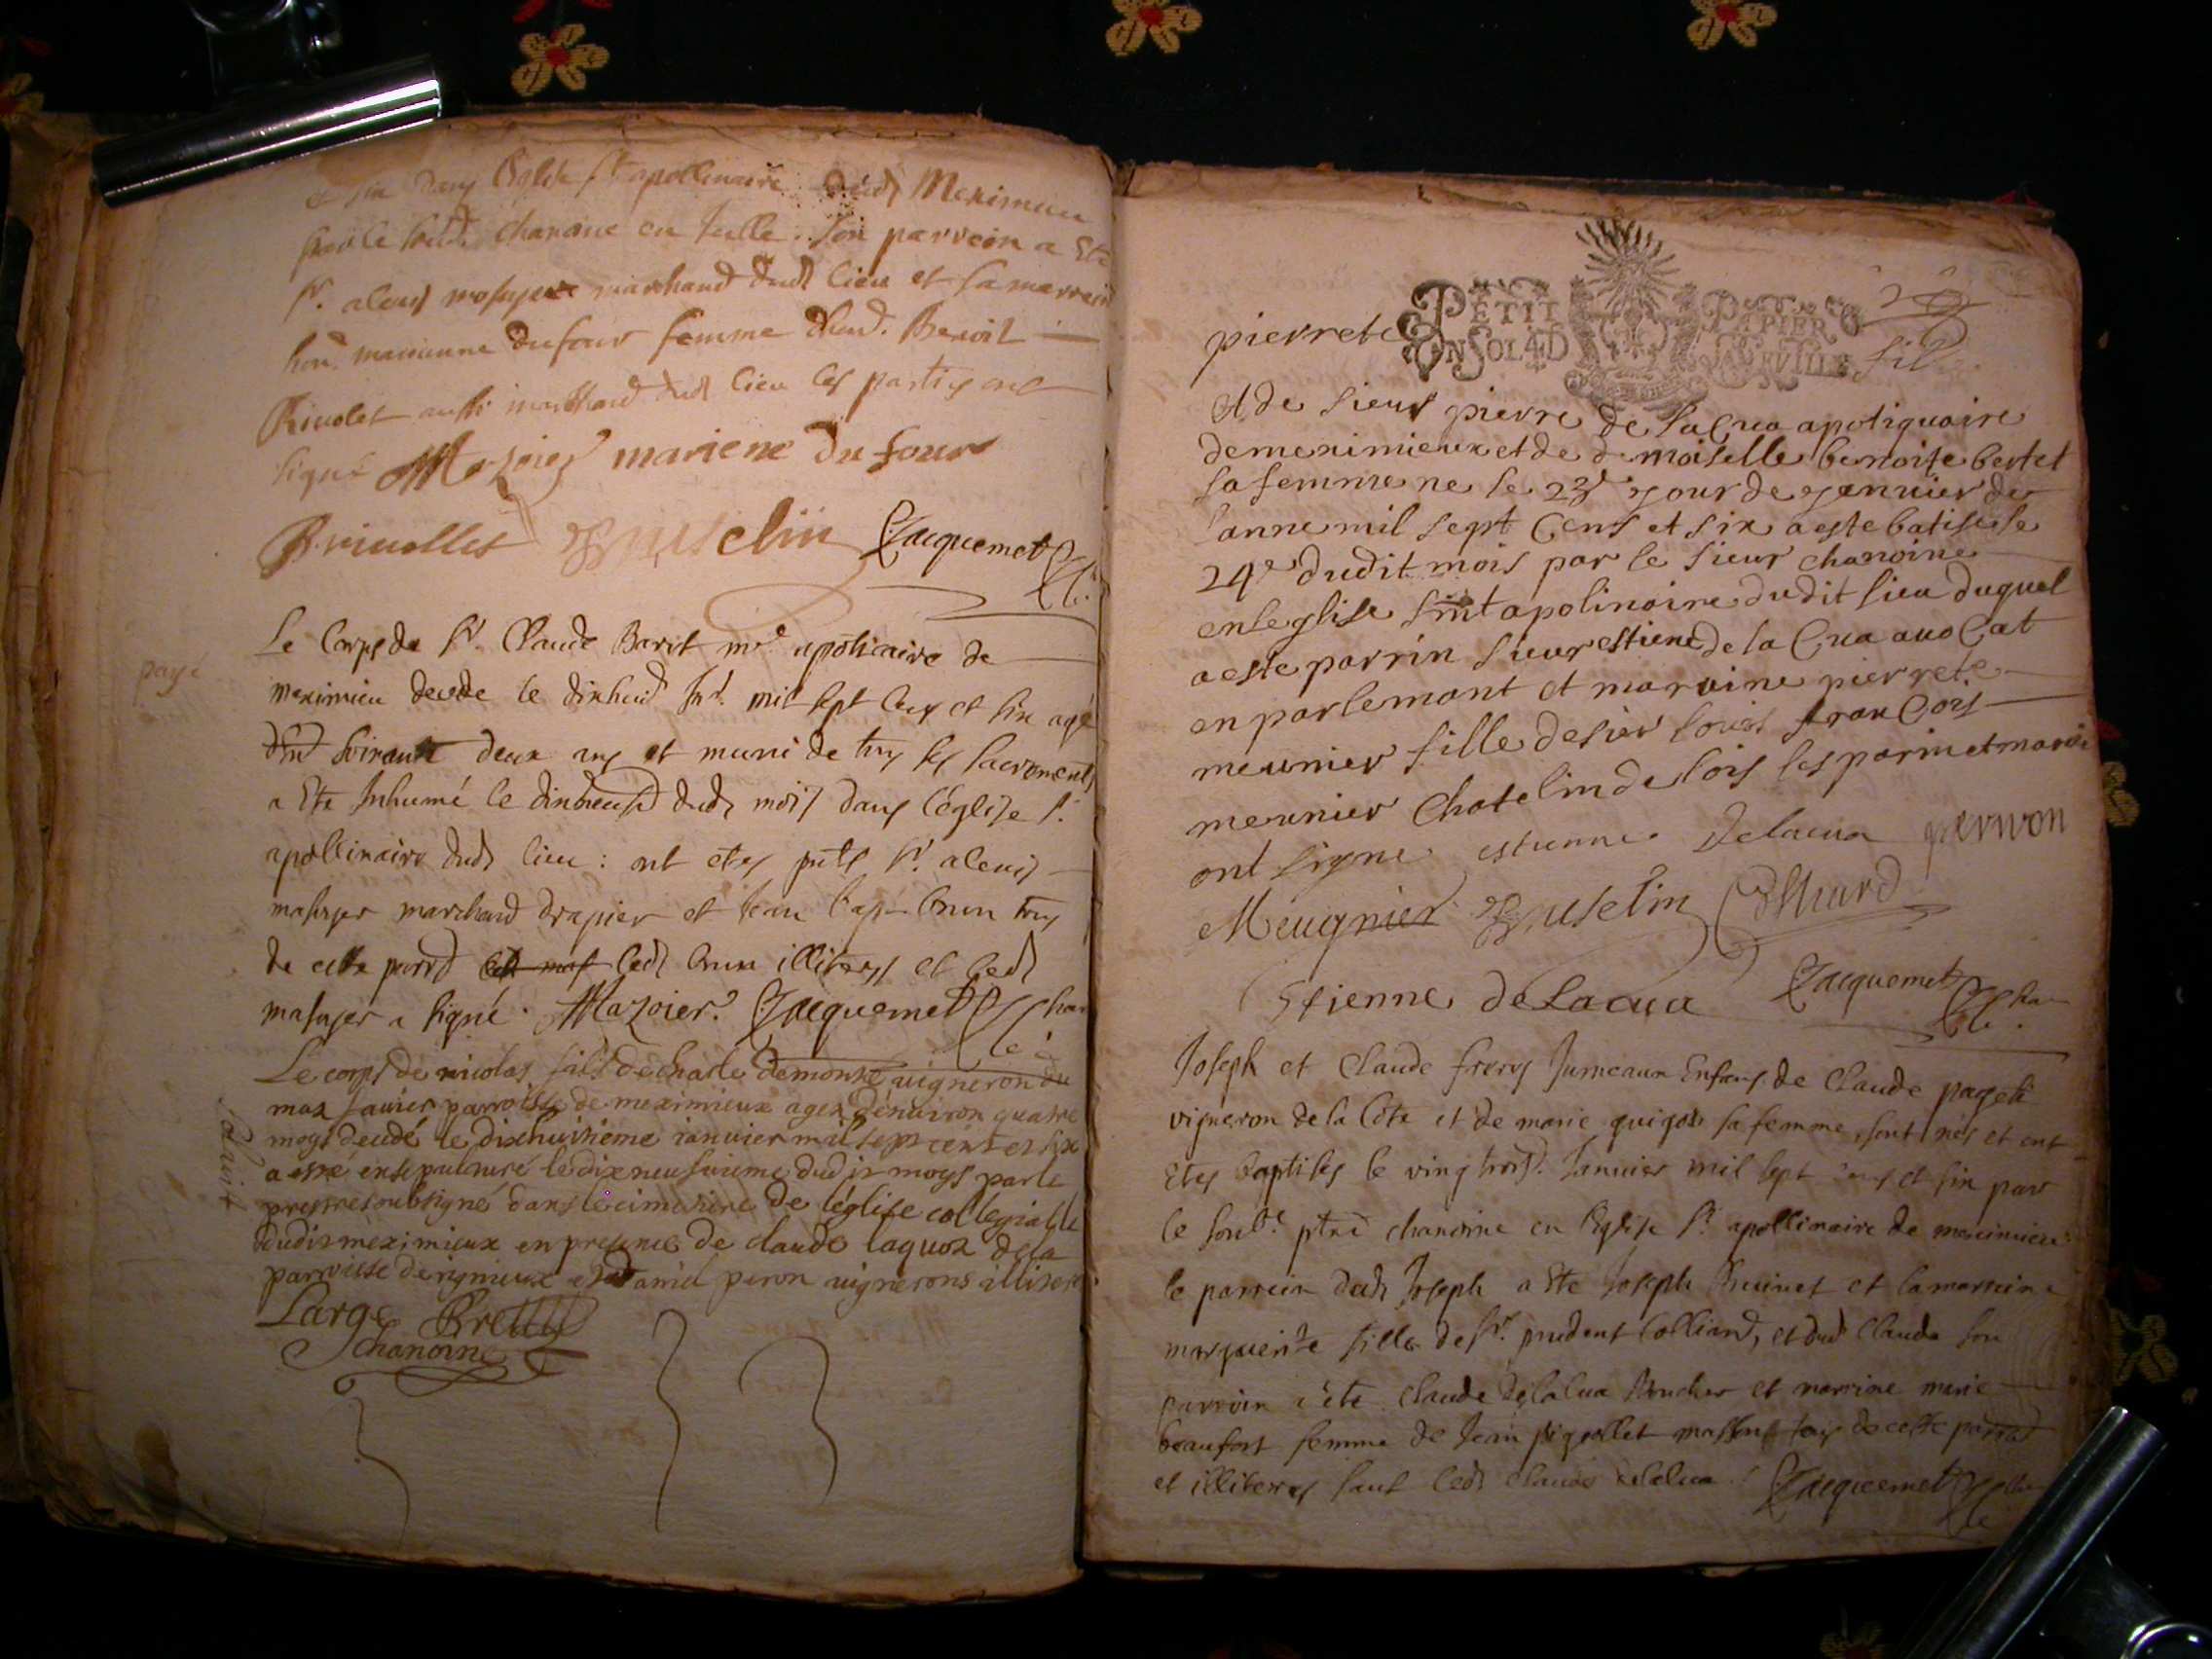 et six dans l'Eglise St apollinaire dud Meximieu
chanoine en Icelle. Son parrein a Ete
Sr. alexis masuyer marchand dud lieu et sa marreine
hon. marienne dufour femme d'hon. Benoit
Rivolet aussi marchand dud lieu les parties ont
signé Mazoier mariene du four
Jacquemet
Le Corps de Sr. Claude Baret mre. apoticaire de
meximieu decede le dixhuit mil sept Cens et six agé
soixante deux ans et muni de tous les sacrements
a Ete Inhumé le dixneuf dud mois dans l'église St.
apollinaire dud lieu : ont etes Sr. alexis
masuyer marchand drapier et Jean tous
de cette parr. led illiteres et led
masuyer a signé. Mazoier. Jacquemet
payé
Le corps de nicolas fils de charle demonte vigneron du
mas parroisse de meximieux agez denviron quatre
moys decedé le dixhuitieme ianvier mil sept cent et six
a esté ensepulturé le dixneufvieme dudit moys par le
prestre soubsigné dans le cimetiere de léglise collégialle
dudit meximieux en presence de claude laquoz de la
parroisse de rignieux et daniel peron vignerons illiteres
Large
chanoine
PETIT PAPIER
UN SOL 4 D LA FEUILLE
pierrete fil
et de sieur pierre de la Cua apotiquaire
de meximieux et de demoiselle benoite bertet
sa femme ne le 23e jour de janvier de
l'anne mil sept Cens et six a este batise le
24e dudit mois par le sieur chanoine
en leglise sint apolinaire dudit lieu duquel
a este parrin sieur estiene de la Cua avoCat
en parlemant et maraine pierrete
meunier fille de sier louis franCois
meunier Chatelin de lois les parin et marai
ont signe estienne Delacua
Meugnier
Etienne de Lacua Jacquemet
Joseph et Claude freres Jumeaux Enfans de Claude pageti
vigneron de la Cote et de marie guigot sa femme, sont nés et ont
Etes baptisés le vingtrois. Janvier mil sept cens et six par
le soub. ptre chanoine en l'Eglise St. apollinaire de meximieux
le parrein dud Joseph a Ete Joseph et la marreine
marguerite fille de Sr. prudent Colliard, et dud Claude son
parrein a ete Claude Delalua et marrine marie
beaufort femme de Jean tous de cette parr.
et illiteres sauf led Claude delalua. Jacquemet